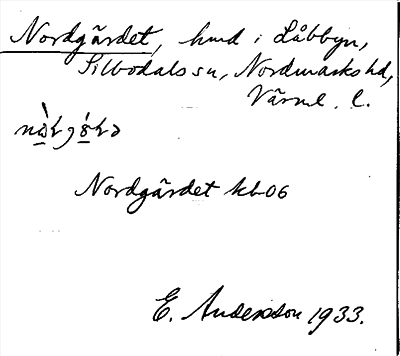 Nordgärdet, hmd i Låbbyn,
Silbodals sn, Nordmarks hd,
Värml. l.
Nordgärdet kb06
E. Anderson 1933.